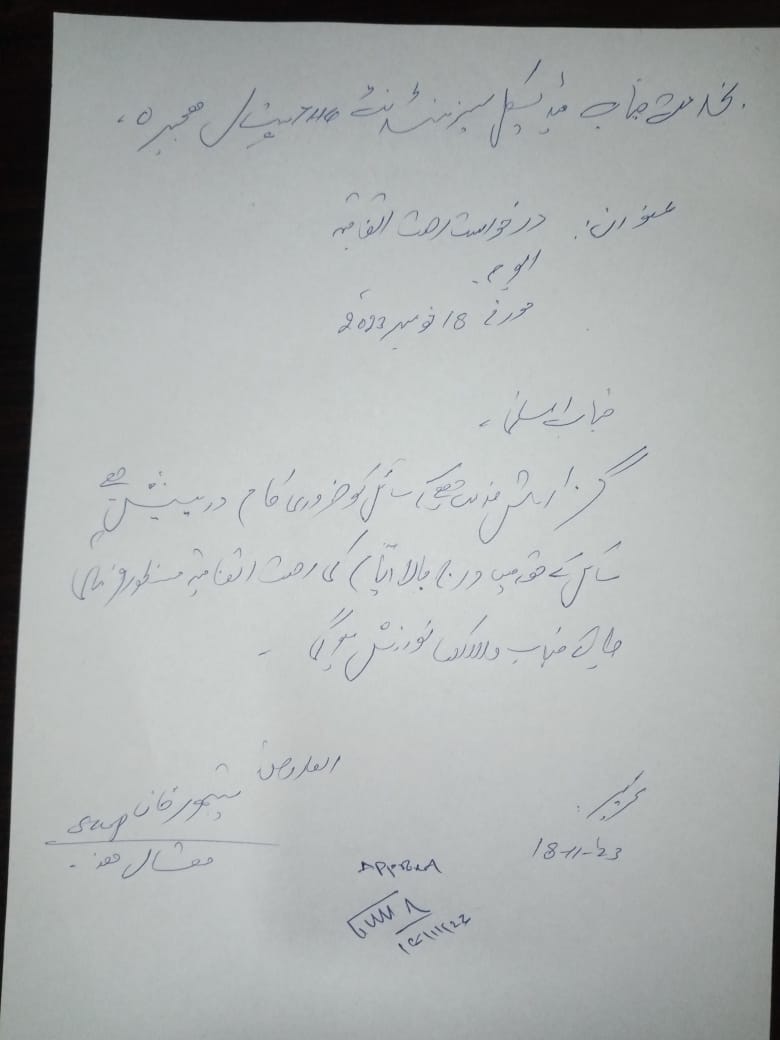 بخدمت جناب میڈیکل سپرنٹنڈنٹ THQ ہسپتال ھجیرہ۔
عنوان: درخواست رخصت اتفاقیہ
الیوم
مورخہ 18 نومبر 2023
جناب
گزارش ھے کہ سائل کو ضروری کام درپیش ھے
سائل کے حق میں درج بالا ایام کی رخصت اتفاقیہ منظور فرمائی
جائے جناب والا کی نوازش ہو گی۔
العارض
خان
تحریر:
18-11-23
Approved